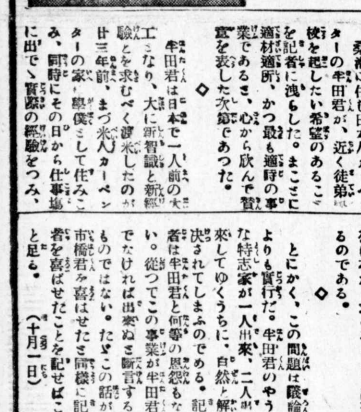 ターの半田君が、近く徒弟
校を起したい希望のあるこ
を記者に洩らした。まことに
適材適所、かつ最も適時の事
業であるさ、心から欣んで贊
意を表した次第であつた。
◇
半田君は日本で一人前の大
工となり、大に新智識と新經
驗とを求むべく渡米したのが
廿三年前、まづ米人カーペン
ターの家へ學僕として住みこ
み、同時にその日から仕事場
に出でゝ實際の經驗をつみ、
るのである。
◇
とにかく、この問題は議論
よりも實行だ。半田君のやう
な特志家が一人出來、二人出
來してゆくうちに、自然と解
決されてしまふのである。記
者は半田君と何等の恩怨もな
い。從つてこの事業が半田君
でなければ出來ぬと斷言する
ものではない。たゞこの話が
市橋君を喜ばせたと同樣に記
者を喜ばせたことを記せばこ
と足る。(十月一日)